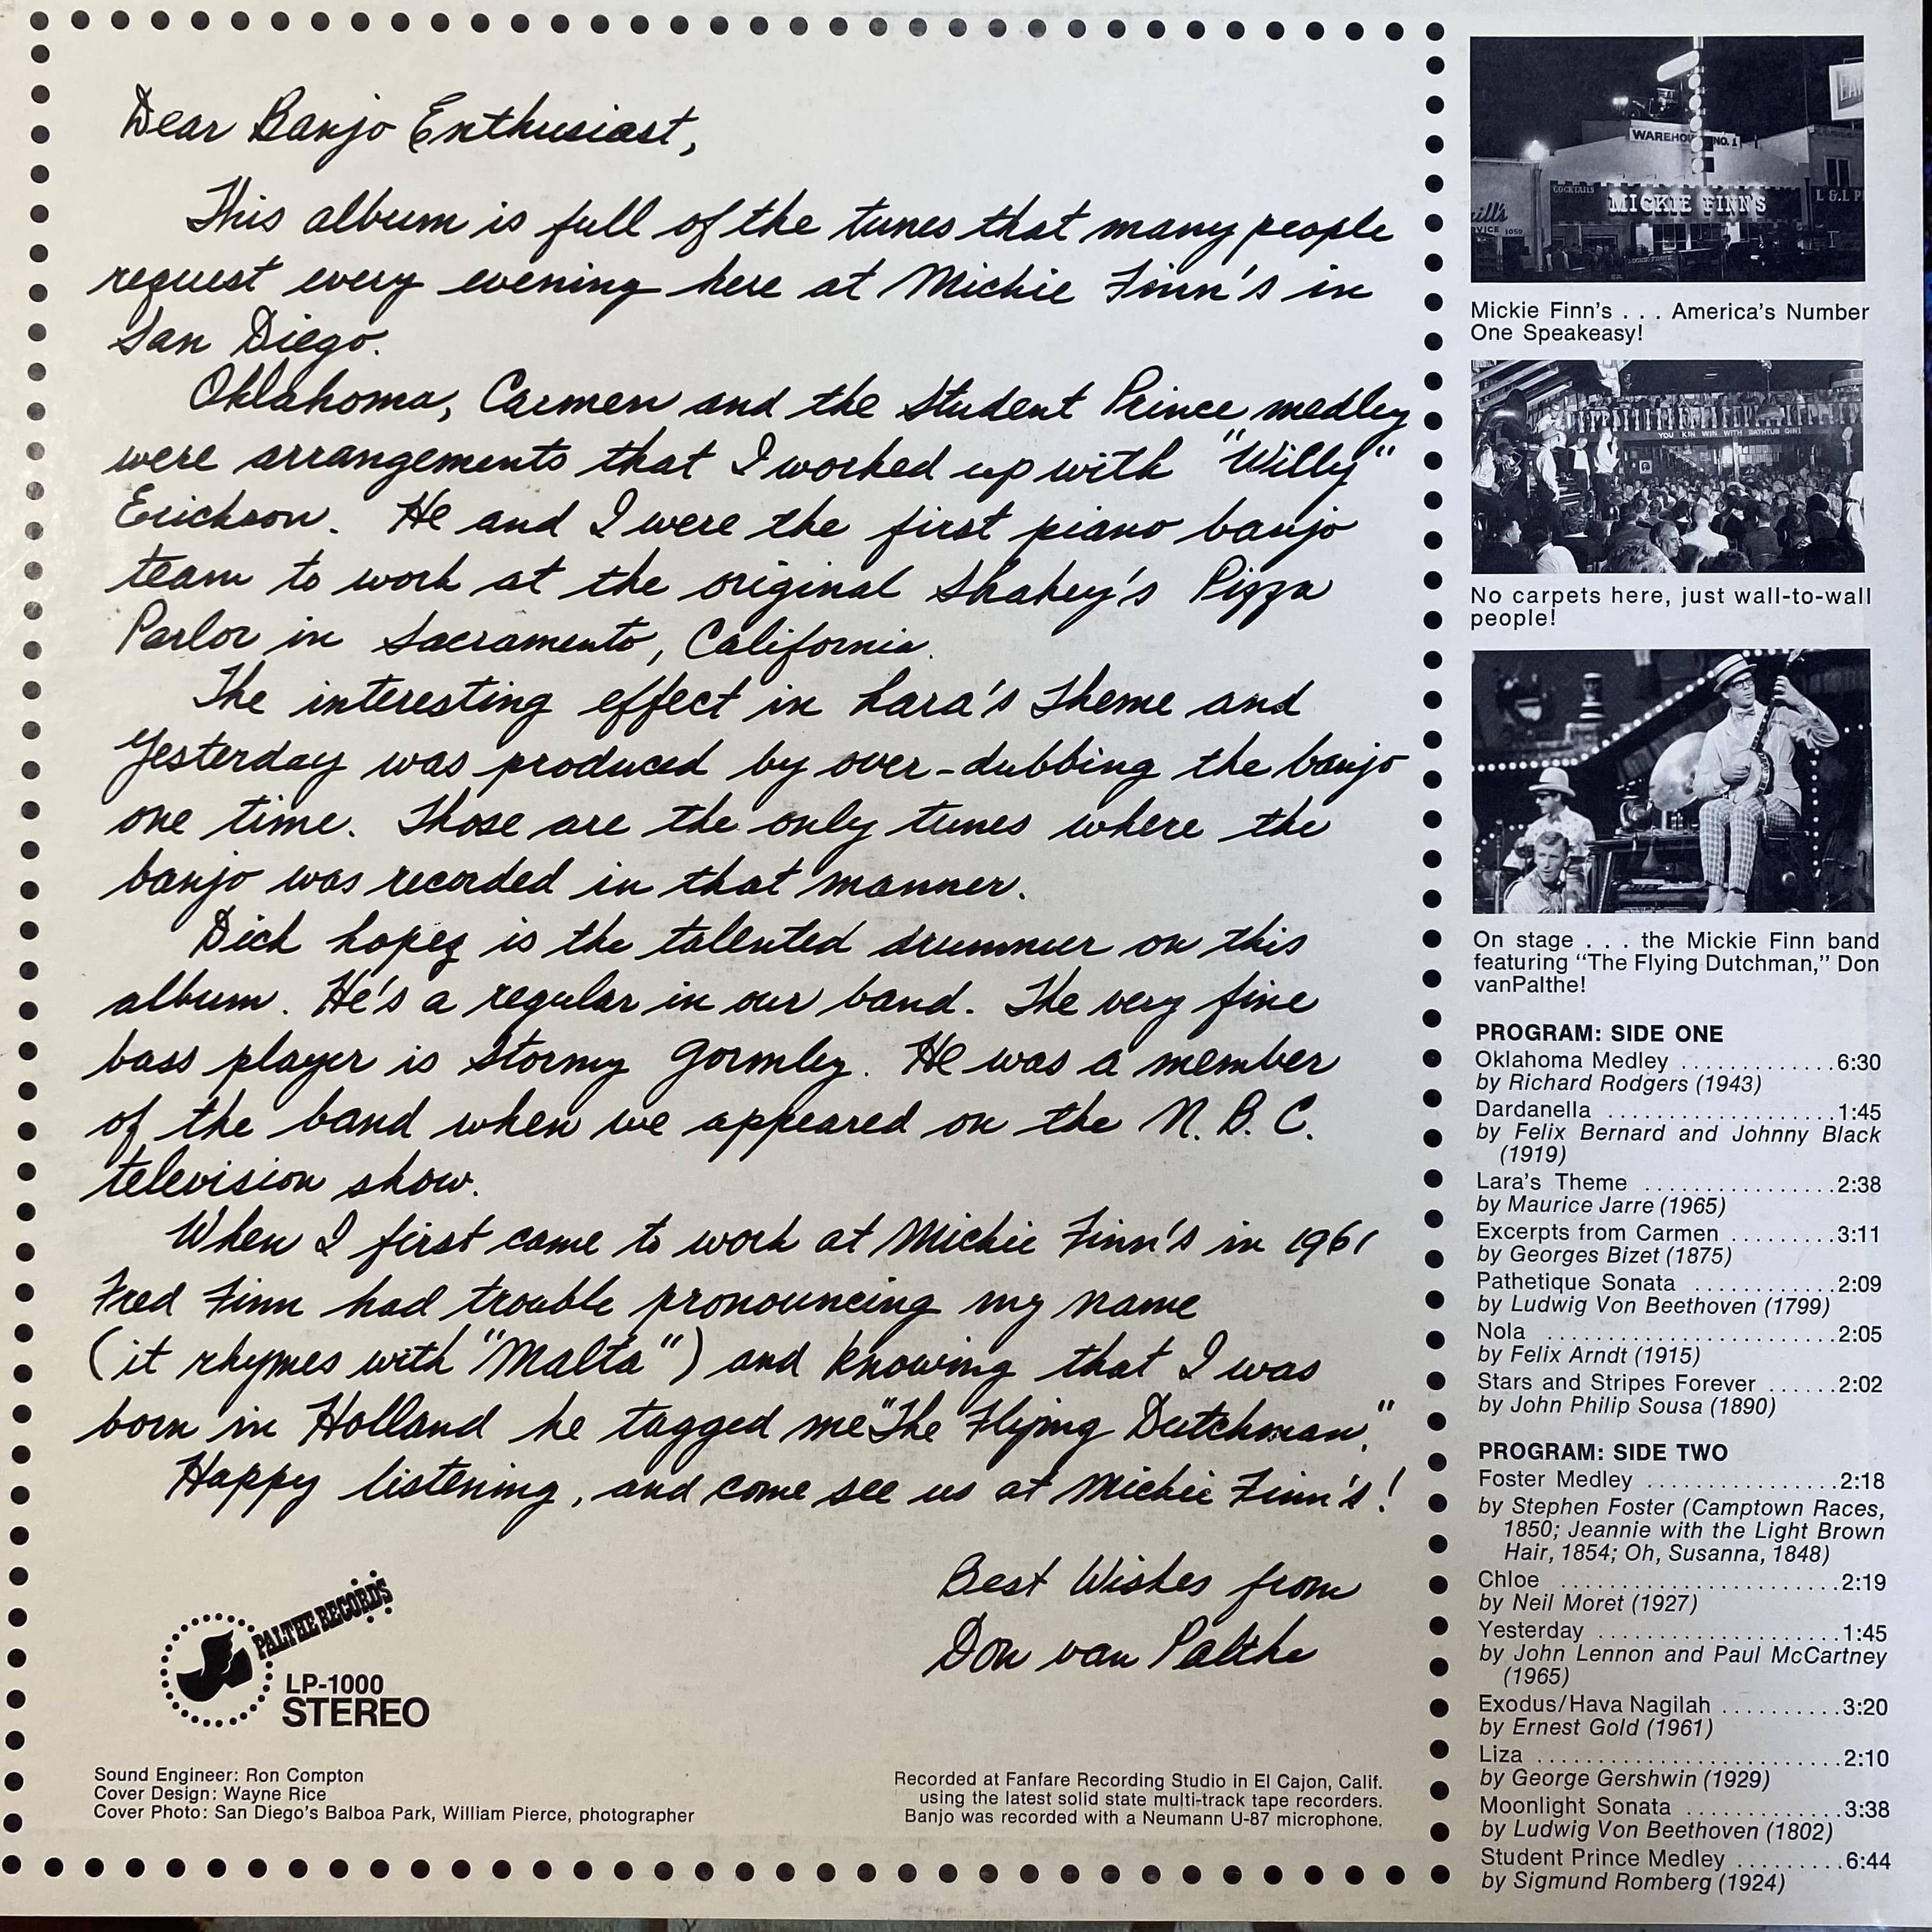 Dear Banjo Enthusiast,
This album is full of the tunes that many people
request every evening here at Mickie Finn's in
San Diego.
Oklahoma, Carmen and the Student Prince medley
were arrangements that I worked up with "Willy"
Erickson. He and I were the first piano banjo
team to work at the original Shakey's Pizza
Parlor in Sacramento, California.
The interesting effect in Lara's Theme and
Yesterday was produced by over-dubbing the banjo
one time. Those are the only tunes where the
banjo was recorded in that manner.
Dick Lopez is the talented drummer on this
album. He's a regular in our band. The very fine
bass player is Stormy Gormley. He was a member
of the band when we appeared on the N.B.C.
television show.
When I first came to work at Mickie Finn's in 1961
Fred Finn had trouble pronouncing my name
(it rhymes with "Malta") and knowing that I was
born in Holland he tagged me "The Flying Dutchman."
Happy listening, and come see us at Mickie Finn's!
Best Wishes from
Don van Palthe
PALTHE RECORDS
LP-1000
STEREO
Sound Engineer: Ron Compton
Cover Design: Wayne Rice
Cover Photo: San Diego's Balboa Park, William Pierce, photographer
Recorded at Fanfare Recording Studio in El Cajon, Calif.
using the latest solid state multi-track tape recorders.
Banjo was recorded with a Neumann U-87 microphone.
WAREHOU NO. 1
COCKTAILS
MICKIE FINN'S
L & L P
ill's
RVICE 1059
Mickie Finn's . . . America's Number
One Speakeasy!
YOU KIN WIN WITH BATHTUB GIN!
No carpets here, just wall-to-wall
people!
On stage . . . the Mickie Finn band
featuring "The Flying Dutchman," Don
vanPalthe!
PROGRAM: SIDE ONE
Oklahoma Medley .............6:30
by Richard Rodgers (1943)
Dardanella ...................1:45
by Felix Bernard and Johnny Black
(1919)
Lara's Theme ................2:38
by Maurice Jarre (1965)
Excerpts from Carmen .........3:11
by Georges Bizet (1875)
Pathetique Sonata .............2:09
by Ludwig Von Beethoven (1799)
Nola ........................2:05
by Felix Arndt (1915)
Stars and Stripes Forever ......2:02
by John Philip Sousa (1890)
PROGRAM: SIDE TWO
Foster Medley ................2:18
by Stephen Foster (Camptown Races,
1850; Jeannie with the Light Brown
Hair, 1854; Oh, Susanna, 1848)
Chloe .......................2:19
by Neil Moret (1927)
Yesterday ...................1:45
by John Lennon and Paul McCartney
(1965)
Exodus/Hava Nagilah ..........3:20
by Ernest Gold (1961)
Liza .........................2:10
by George Gershwin (1929)
Moonlight Sonata .............3:38
by Ludwig Von Beethoven (1802)
Student Prince Medley .........6:44
by Sigmund Romberg (1924)